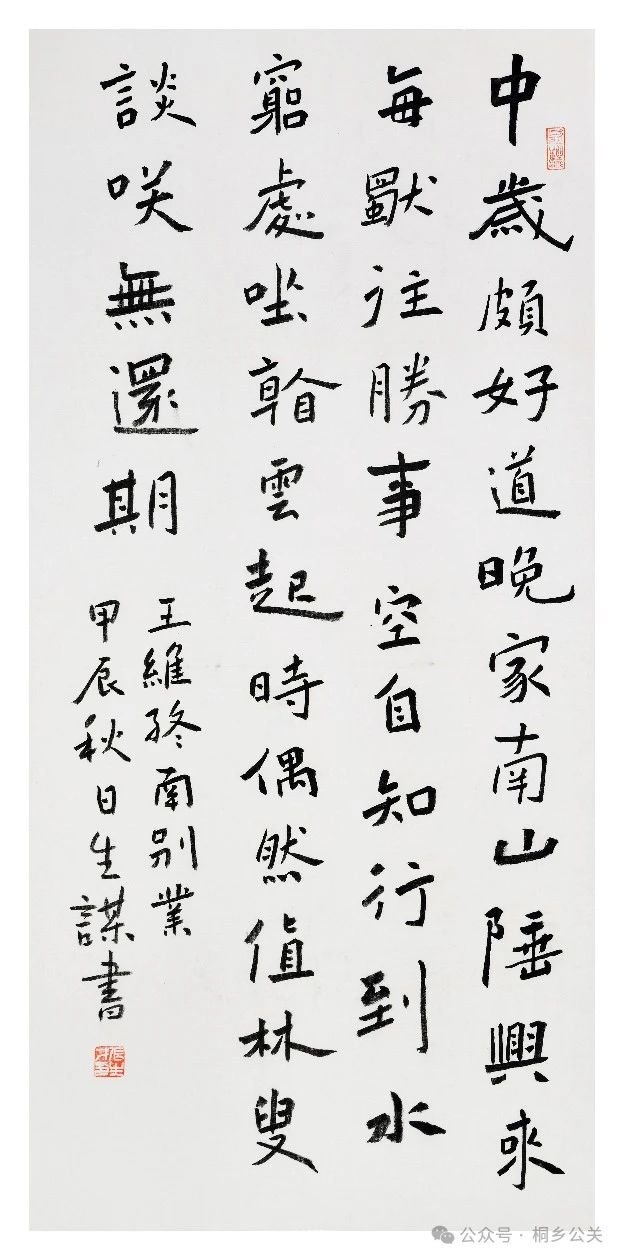 中歲頗好道晚家南山陲興來
每獸往勝事空自知行到水
窮處坐看雲起時偶然值林叟
談咲無還期
王維終南别業
甲辰秋日生謀書
公众号·桐乡公关